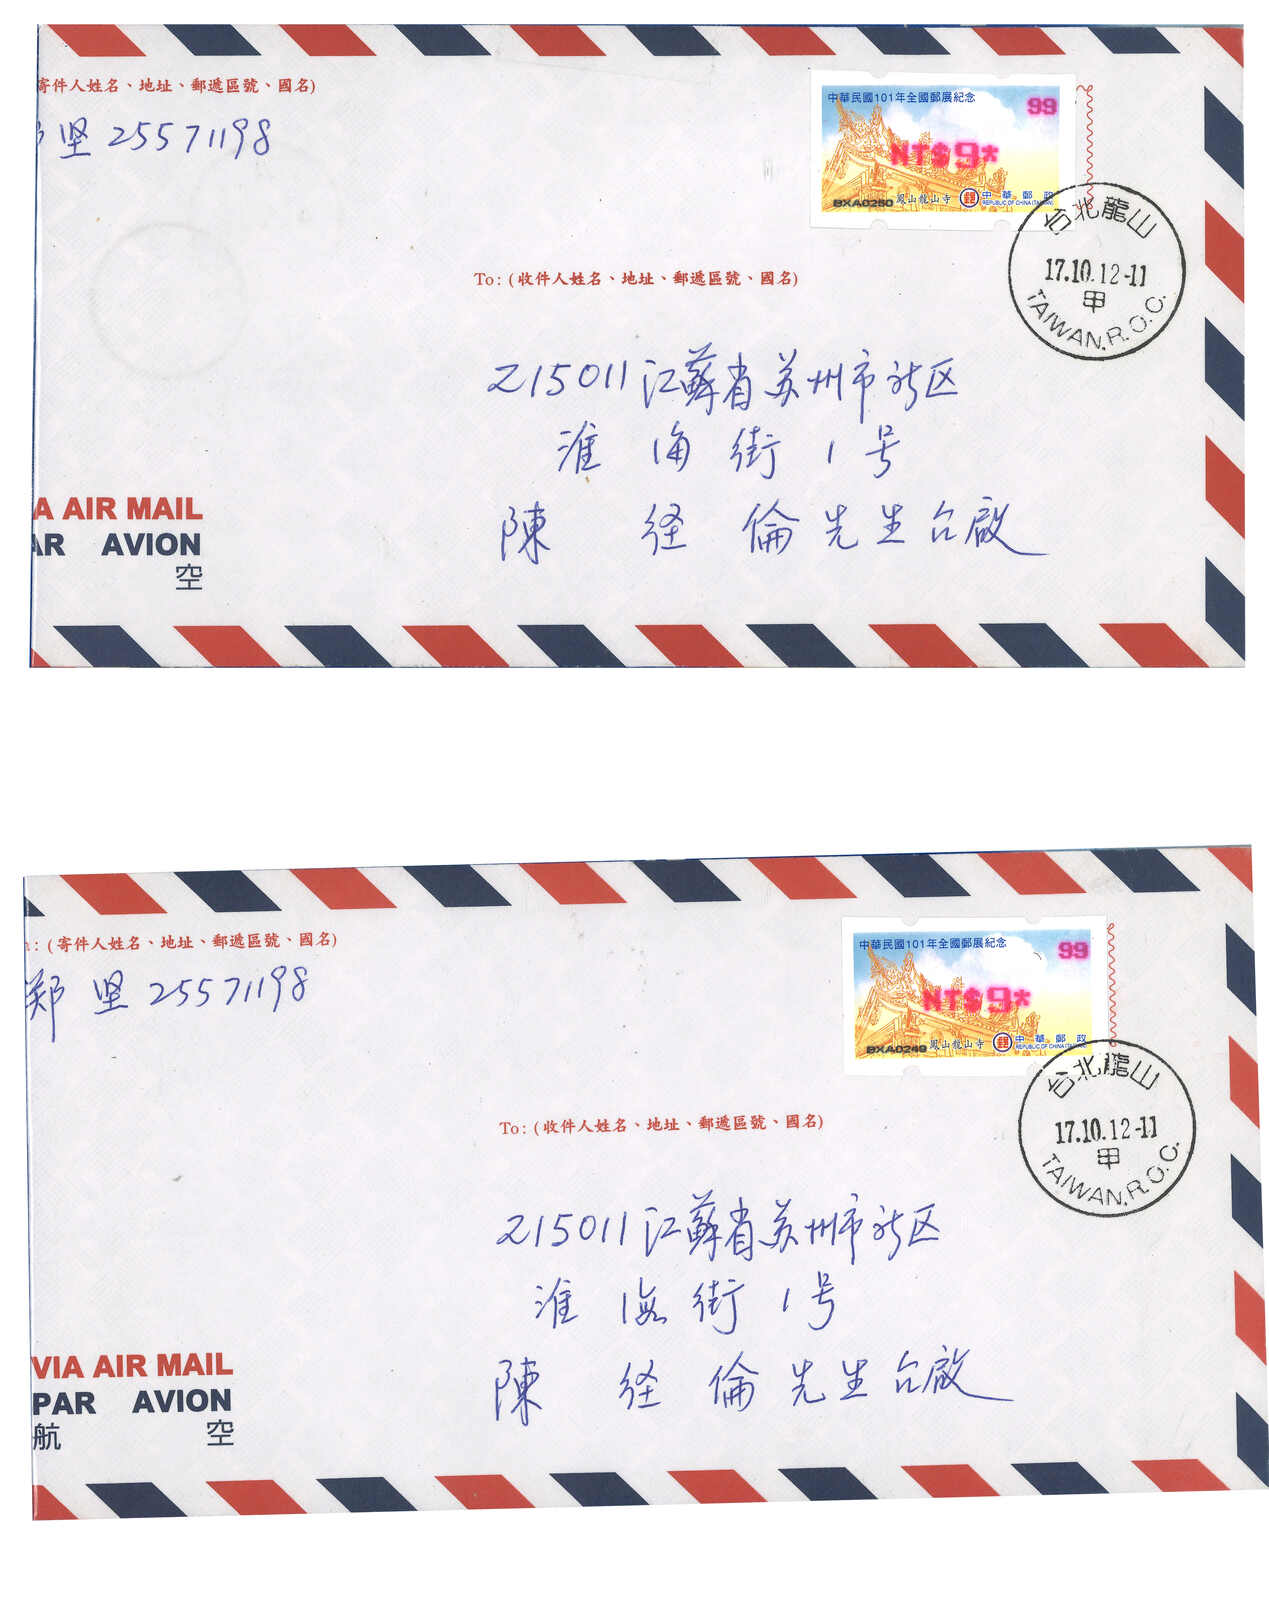 寄件人姓名、地址、郵遞區號、國名)
坚 25571198
中華民國101年全國郵展紀念
99
NT$9*
BXA0250 鳳山龍山寺 中華郵政
REPUBLIC OF CHINA (TAIWAN)
台北龍山
17.10.12-11
甲
TAIWAN,R.O.C.
To: (收件人姓名、地址、郵遞區號、國名)
215011 江蘇省苏州市新区
淮海街1号
陳経倫先生台啟
A AIR MAIL
AR AVION
空
: (寄件人姓名、地址、郵遞區號、國名)
郑坚 25571198
中華民國101年全國郵展紀念
99
NT$9*
BXA0249 鳳山龍山寺 中華郵政
REPUBLIC OF CHINA (TAIWAN)
台北龍山
17.10.12-11
甲
TAIWAN,R.O.C.
To: (收件人姓名、地址、郵遞區號、國名)
215011 江蘇省苏州市新区
淮海街1号
陳経倫先生台啟
VIA AIR MAIL
PAR AVION
航空